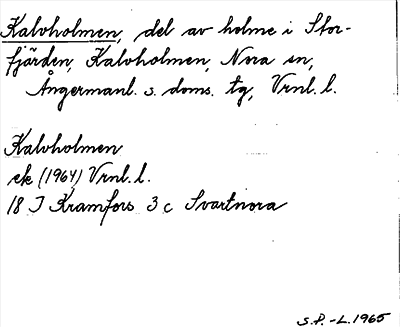 Kalvholmen, del av holme i Stor-
fjärden, Kalvholmen, Nora sn,
Ångermanl. s. doms. tg, Vrnl. l.
Kalvholmen
ek (1964) Vrnl. l.
18 J Kramfors 3 c Svartnora
S.P. -L. 1965